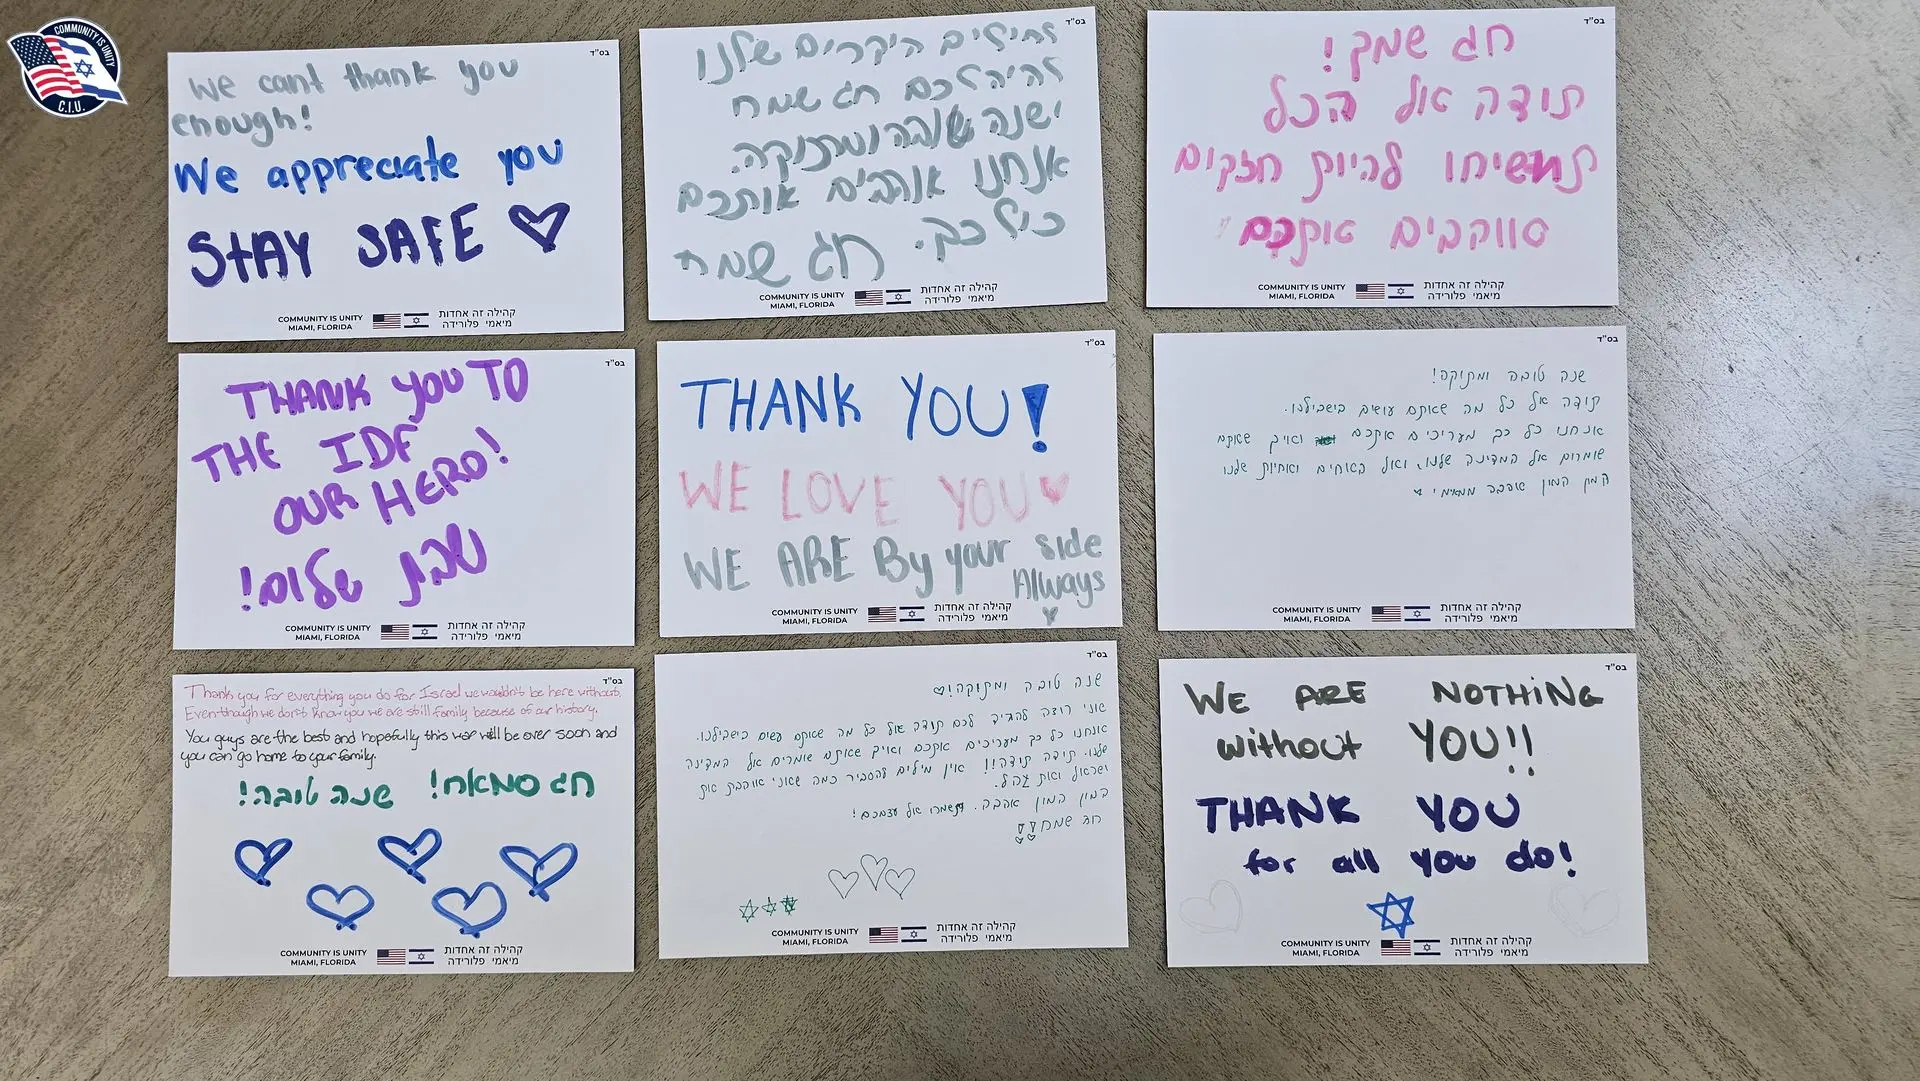 COMMUNITY IS UNITY
C.I.U.
בס"ד
We cant thank you
enough!
We appreciate you
STAY SAFE
COMMUNITY IS UNITY
MIAMI, FLORIDA
קהילה זה אחדות
מיאמי פלורידה
בס"ד
חיילים היקרים שלנו
שיהיה לכם חג שמח
ושנה טובה ומתוקה.
אנחנו אוהבים אותכם
כול כך. חג שמח
COMMUNITY IS UNITY
MIAMI, FLORIDA
קהילה זה אחדות
מיאמי פלורידה
בס"ד
חג שמך!
תודה אל הכל
תמשיחו להיות חזקים
COMMUNITY IS UNITY
MIAMI, FLORIDA
קהילה זה אחדות
מיאמי פלורידה
בס"ד
THANK YOU TO
THE IDF
OUR HERO!
שבת שלום!
COMMUNITY IS UNITY
MIAMI, FLORIDA
קהילה זה אחדות
מיאמי פלורידה
בס"ד
THANK YOU!
WE LOVE YOU
WE ARE By your side
Allways
COMMUNITY IS UNITY
MIAMI, FLORIDA
קהילה זה אחדות
מיאמי פלורידה
בס"ד
שנה טובה ומתוקה!
תודה אל כל מה שאתם עושים בישבילנו.
אנחנו כל כך מעריכים אתכם ואיך שאתם
שומרים אל המדינה שלנו, ואל האחים ואחיות שלנו
המון המון אהבה ממיאמי
COMMUNITY IS UNITY
MIAMI, FLORIDA
קהילה זה אחדות
מיאמי פלורידה
בס"ד
Thank you for everything you do for Israel we wouldn't be here without.
Even though we don't know you we are still family because of our history.
You guys are the best and hopefully this war will be over soon and
you can go home to your family.
חג סמאח! שנה טובה!
COMMUNITY IS UNITY
MIAMI, FLORIDA
קהילה זה אחדות
מיאמי פלורידה
בס"ד
שנה טובה ומתוקה!
אני רוצה להגיד לכם תודה אל כל מה שאתם עשים בישבילנו.
אנחנו כל כך מעריכים אתכם ואיך שאתם שומרים אל המדינה
שלנו. תודה תודה!! אין מילים להסביר כמה שאני אוהבת את
ישראל ואת צהל.
המון המון אהבה. תשמרו אל עצמכם!
חג שמח!!
COMMUNITY IS UNITY
MIAMI, FLORIDA
קהילה זה אחדות
מיאמי פלורידה
בס"ד
WE ARE NOTHING
without YOU!!
THANK YOU
for all you do!
COMMUNITY IS UNITY
MIAMI, FLORIDA
קהילה זה אחדות
מיאמי פלורידה